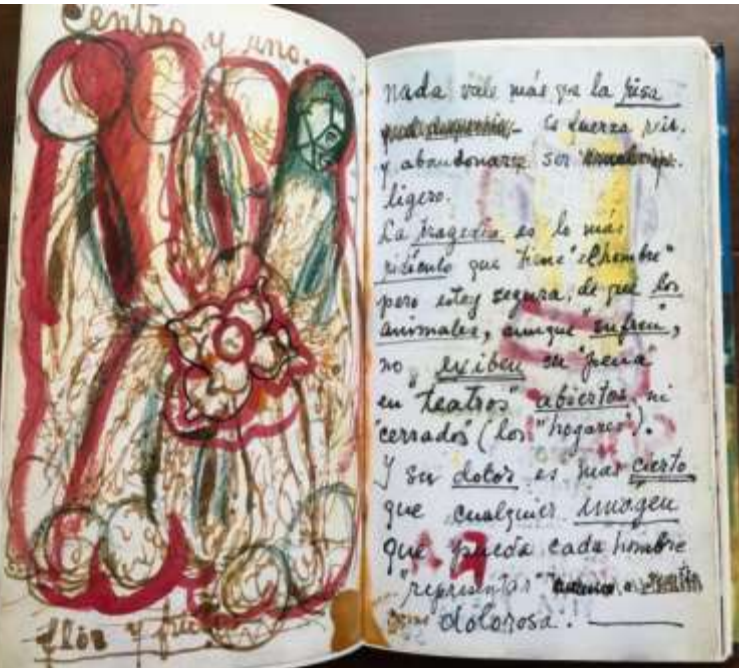 Centro y uno.
flor y
nada vale más que la risa
Es fuerza reir.
y abandonarse. ser
ligero.
La tragedia es lo más
ridículo que tiene "el hombre"
pero estoy segura, de que los
animales, aunque "sufren",
no exiben su "pena"
en "teatros" abiertos, ni
"cerrados" (los "hogares").
Y su dolor es mas cierto
que cualquier imagen
que pueda cada hombre
"representar"
como dolorosa.